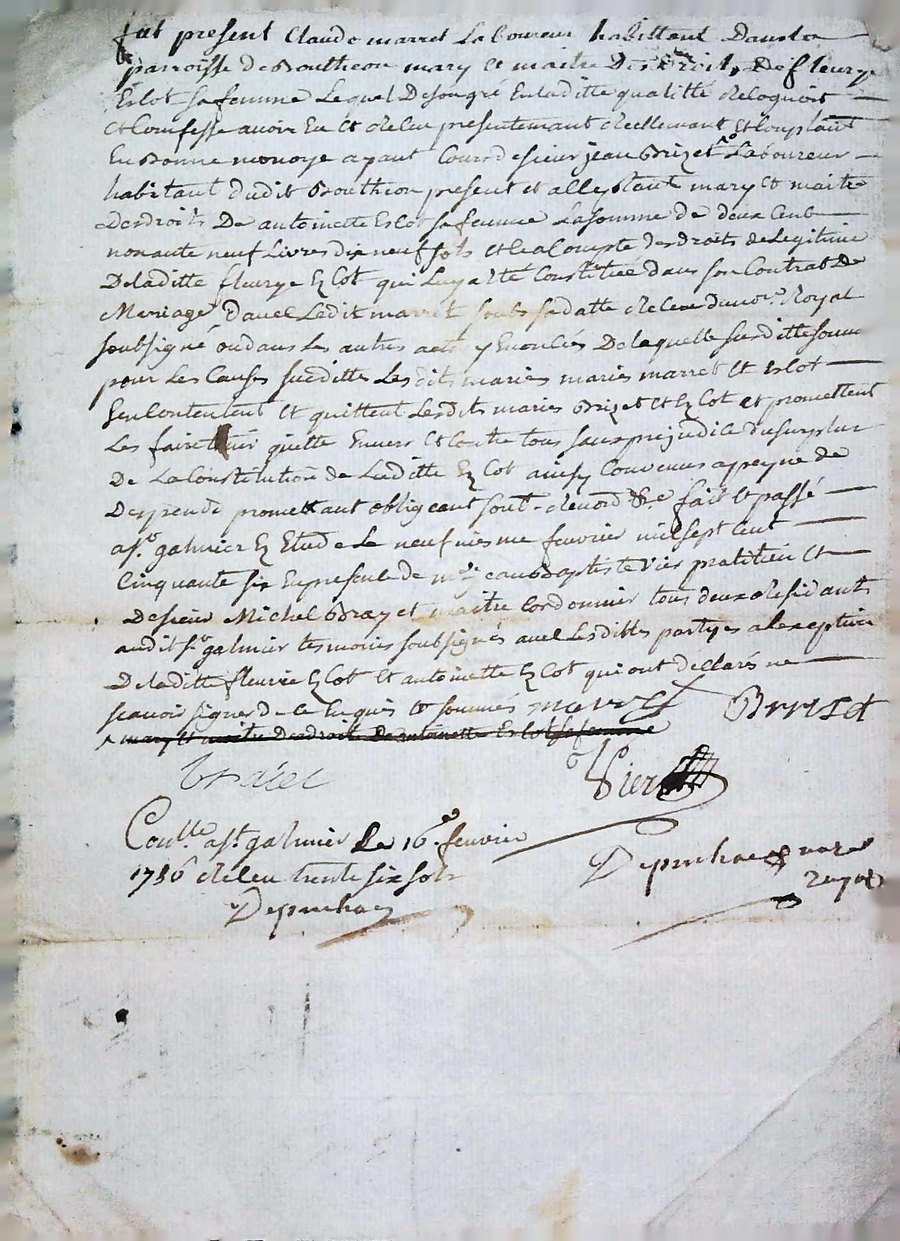 fut present Claude marret Laboureur habittant Dans la
parroisse de Boutheon mary et maitre Desdroits De fleurye
Eslot sa femme Lequel De son gré En laditte qualitté Recognoit
et Confesse avoir Eu et Receu presentemant Reellemant et Comptant
En Bonne monoye ayant Cours de sieur jean Brizet Laboureur
habitant dudit Boutheon present et acceptant mary et maitre
Desdroits De antoinette Eslot sa femme La somme de deux Cent
nonante neuf Livres dix neuf sols et ce a Compte des droits de Legitime
De laditte fleurye Eslot qui Luy a Eté Constituée dans son Contrat De
Mariage d'avec Ledit marret soubs sa datte Receu du nore Royal
soubsigné ou dans Les autres actes y Enoncés De laquelle susditte somme
pour Les Causes susdittes Les dits mariés mariés marret et Eslot
sen Contentent et quittent Lesdits mariés Brizet et Eslot et promettent
Les faire tenir quitte Envers et Contre tous sans prejudice du surplus
De La Constitution de Laditte Eslot ainsy Convenus a peyne de
Despends promettant obligeant soub. Renond &c fait et passé
a st galmier En Etude Le neufviesme fevrier mil sept Cent
Cinquante six En presence de mre jean Baptiste Vier praticien et
De sieur Michel Brayet maitre Cordonnier tous deux Residants
audit st galmier tesmoins soubsignés avec Lesdittes partyes a lexception
De laditte fleurie Eslot et antoinette Eslot qui ont declarés ne
scavoir signer de ce Enquis et sommés marret Brriset
mary et maitre Desdroits De antoinette Eslot sa femme
Braiet Vier
Coullé a st galmier Le 16e fevrier
1756 Receu trente six sols
Depuchac
Depuchac nore
royal